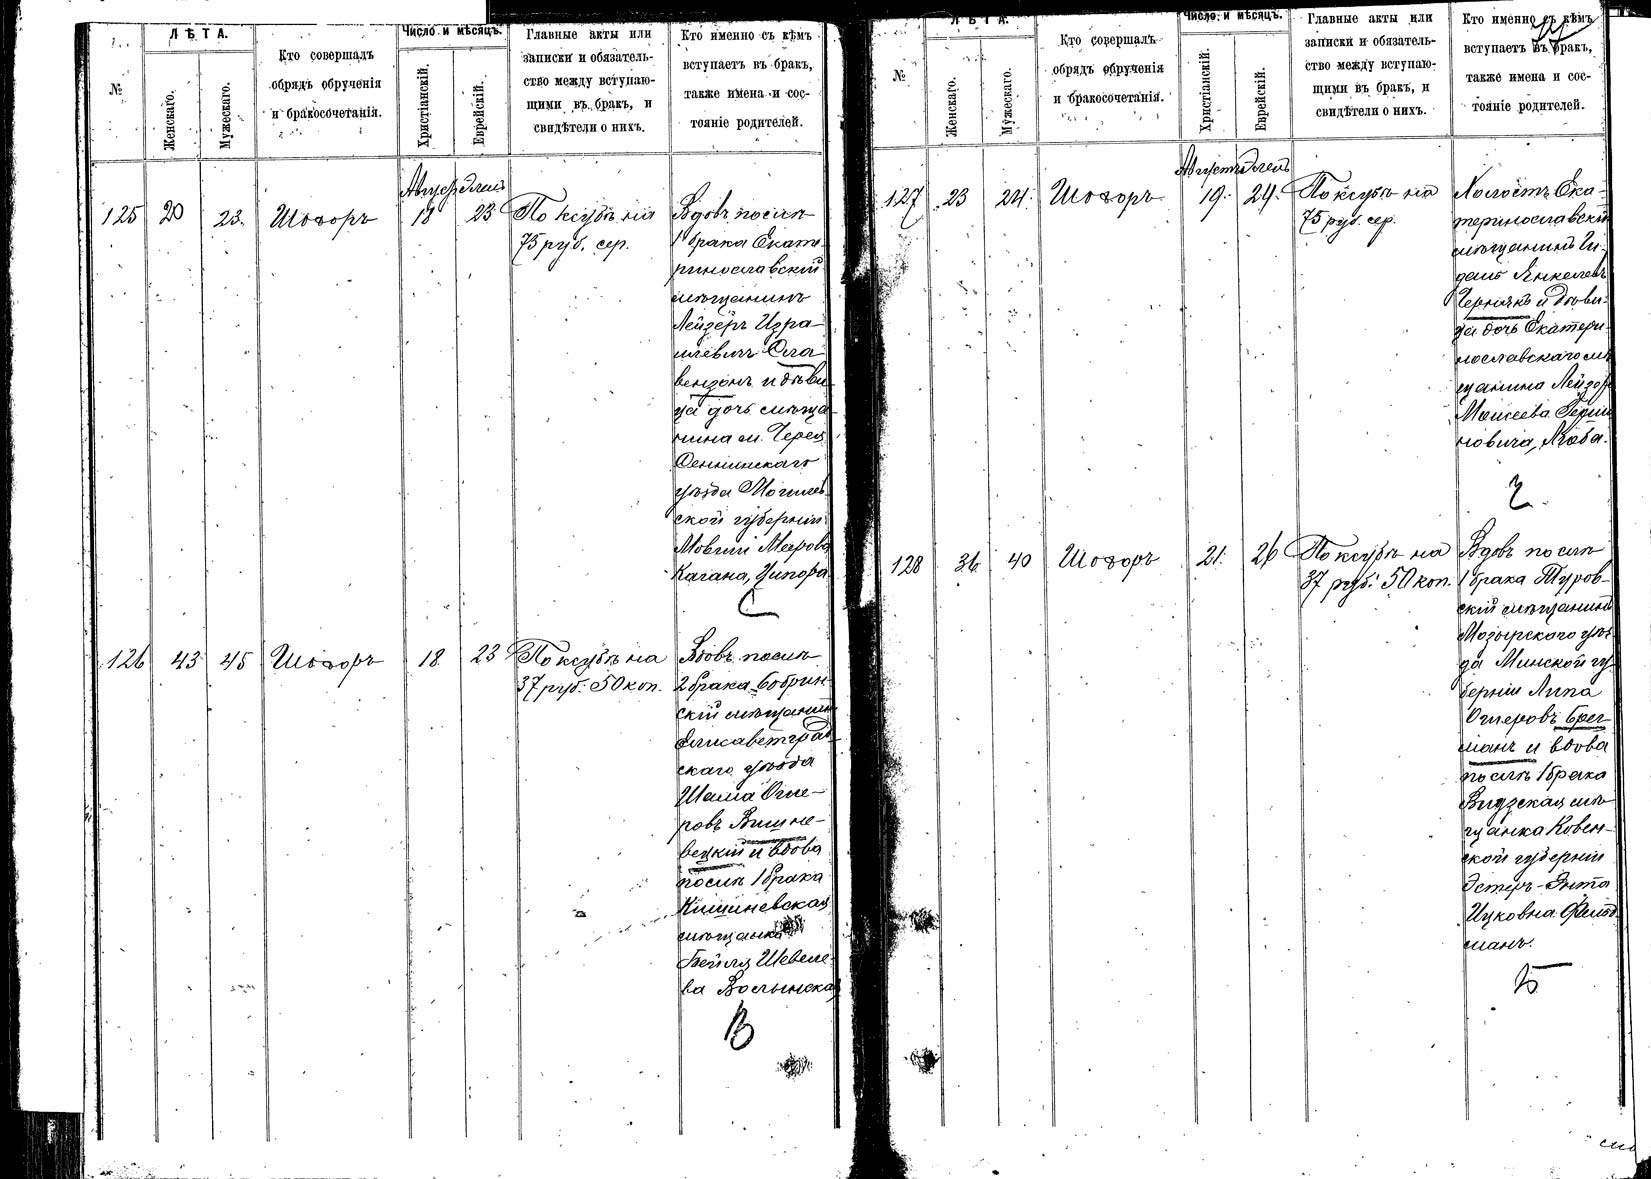 №
ЛѢТА.
Женскаго.
Мужескаго.
Кто совершалъ
обрядъ обрученія
и бракосочетанія.
Число и мѣсяцъ.
Христіанскій.
Еврейскій.
Главные акты или
записки и обязатель-
ство между вступаю-
щими въ бракъ, и
свидѣтели о нихъ.
Кто именно съ кѣмъ
вступаетъ въ бракъ,
также имена и сос-
тояніе родителей.
Августъ Элелъ
125 20 23. Шохоръ 18 23
По ксубѣ на
75 руб. сер.
Вдовъ послѣ
1 брака Екате-
ринославскій
мѣщанинъ
Лейзеръ Изра-
илевичъ Сла
вензонъ и дѣви
ца дочь мѣща-
нина м. Черея
Сеннинскаго
уѣзда Могилев-
ской губерніи
Мовши Меерова
Кагана, Ципора
С
126 43 45 Шохоръ 18 23
По ксубѣ на
37 руб. 50 коп.
Вдовъ послѣ
2 брака Бобрин-
скій мѣщанинъ
Елисаветград-
скаго уѣзда
Шама Ошe-
ровъ Вишне-
вецкій и вдова
послѣ 1 брака
Кишиневская
мѣщанка
Бейля Шевеле-
ва Волынская
В
№
ЛѢТА.
Женскаго.
Мужескаго.
Кто совершалъ
обрядъ обрученія
и бракосочетанія.
Число и мѣсяцъ.
Христіанскій.
Еврейскій.
Главные акты или
записки и обязатель-
ство между вступаю-
щими въ бракъ, и
свидѣтели о нихъ.
Кто именно съ кѣмъ
вступаетъ въ бракъ,
также имена и сос-
тояніе родителей.
Августъ Элелъ
127 23 24. Шохоръ 19. 24.
По ксубѣ на
75 руб. сер.
Холостъ Ека-
теринославскій
мѣщанинъ
Янкелевъ
Чернякъ и дѣви-
ца дочь Екатери-
нославскаго мѣ
щанина Лейзера
Моисеева Герши
новича, Люба.
Ч
128 36 40 Шохоръ 21. 26
По ксубѣ на
37 руб. 50 коп.
Вдовъ послѣ
1 брака Туров-
скій мѣщанинъ
Мозырскаго уѣз-
да Минской гу-
берніи Липа
Ошеровъ Брег-
манъ и вдова
послѣ 1 брака
Видзская мѣ-
щанка Ковен-
ской губерніи
Эстеръ-Энта
Ицковна Фельд
манъ.
Б